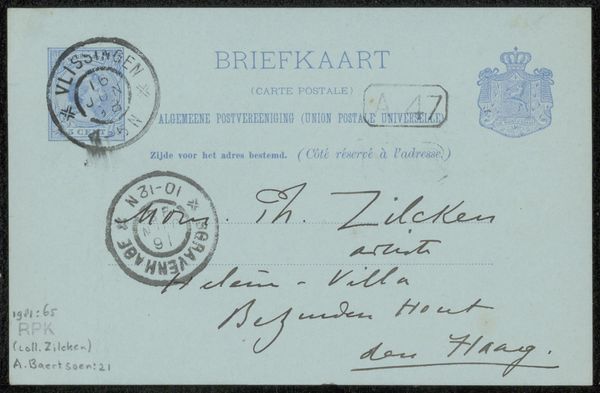 BRIEFKAART
(CARTE POSTALE)
ALGEMEENE POSTVEREENIGING (UNION POSTALE UNIVERSELLE)
Zijde voor het adres bestemd. (Côté réservé à l'adresse.)
VLISSINGEN
16
JUN
91
5 CENT
A 47
'S GRAVENHAGE
10-12 N
91
Mons. Ph. Zilcken
artiste
Helène-Villa
Bezuiden Hout
den Haag.
1981:65
RPK
(coll. Zilcken)
A. Baertsoen: 21